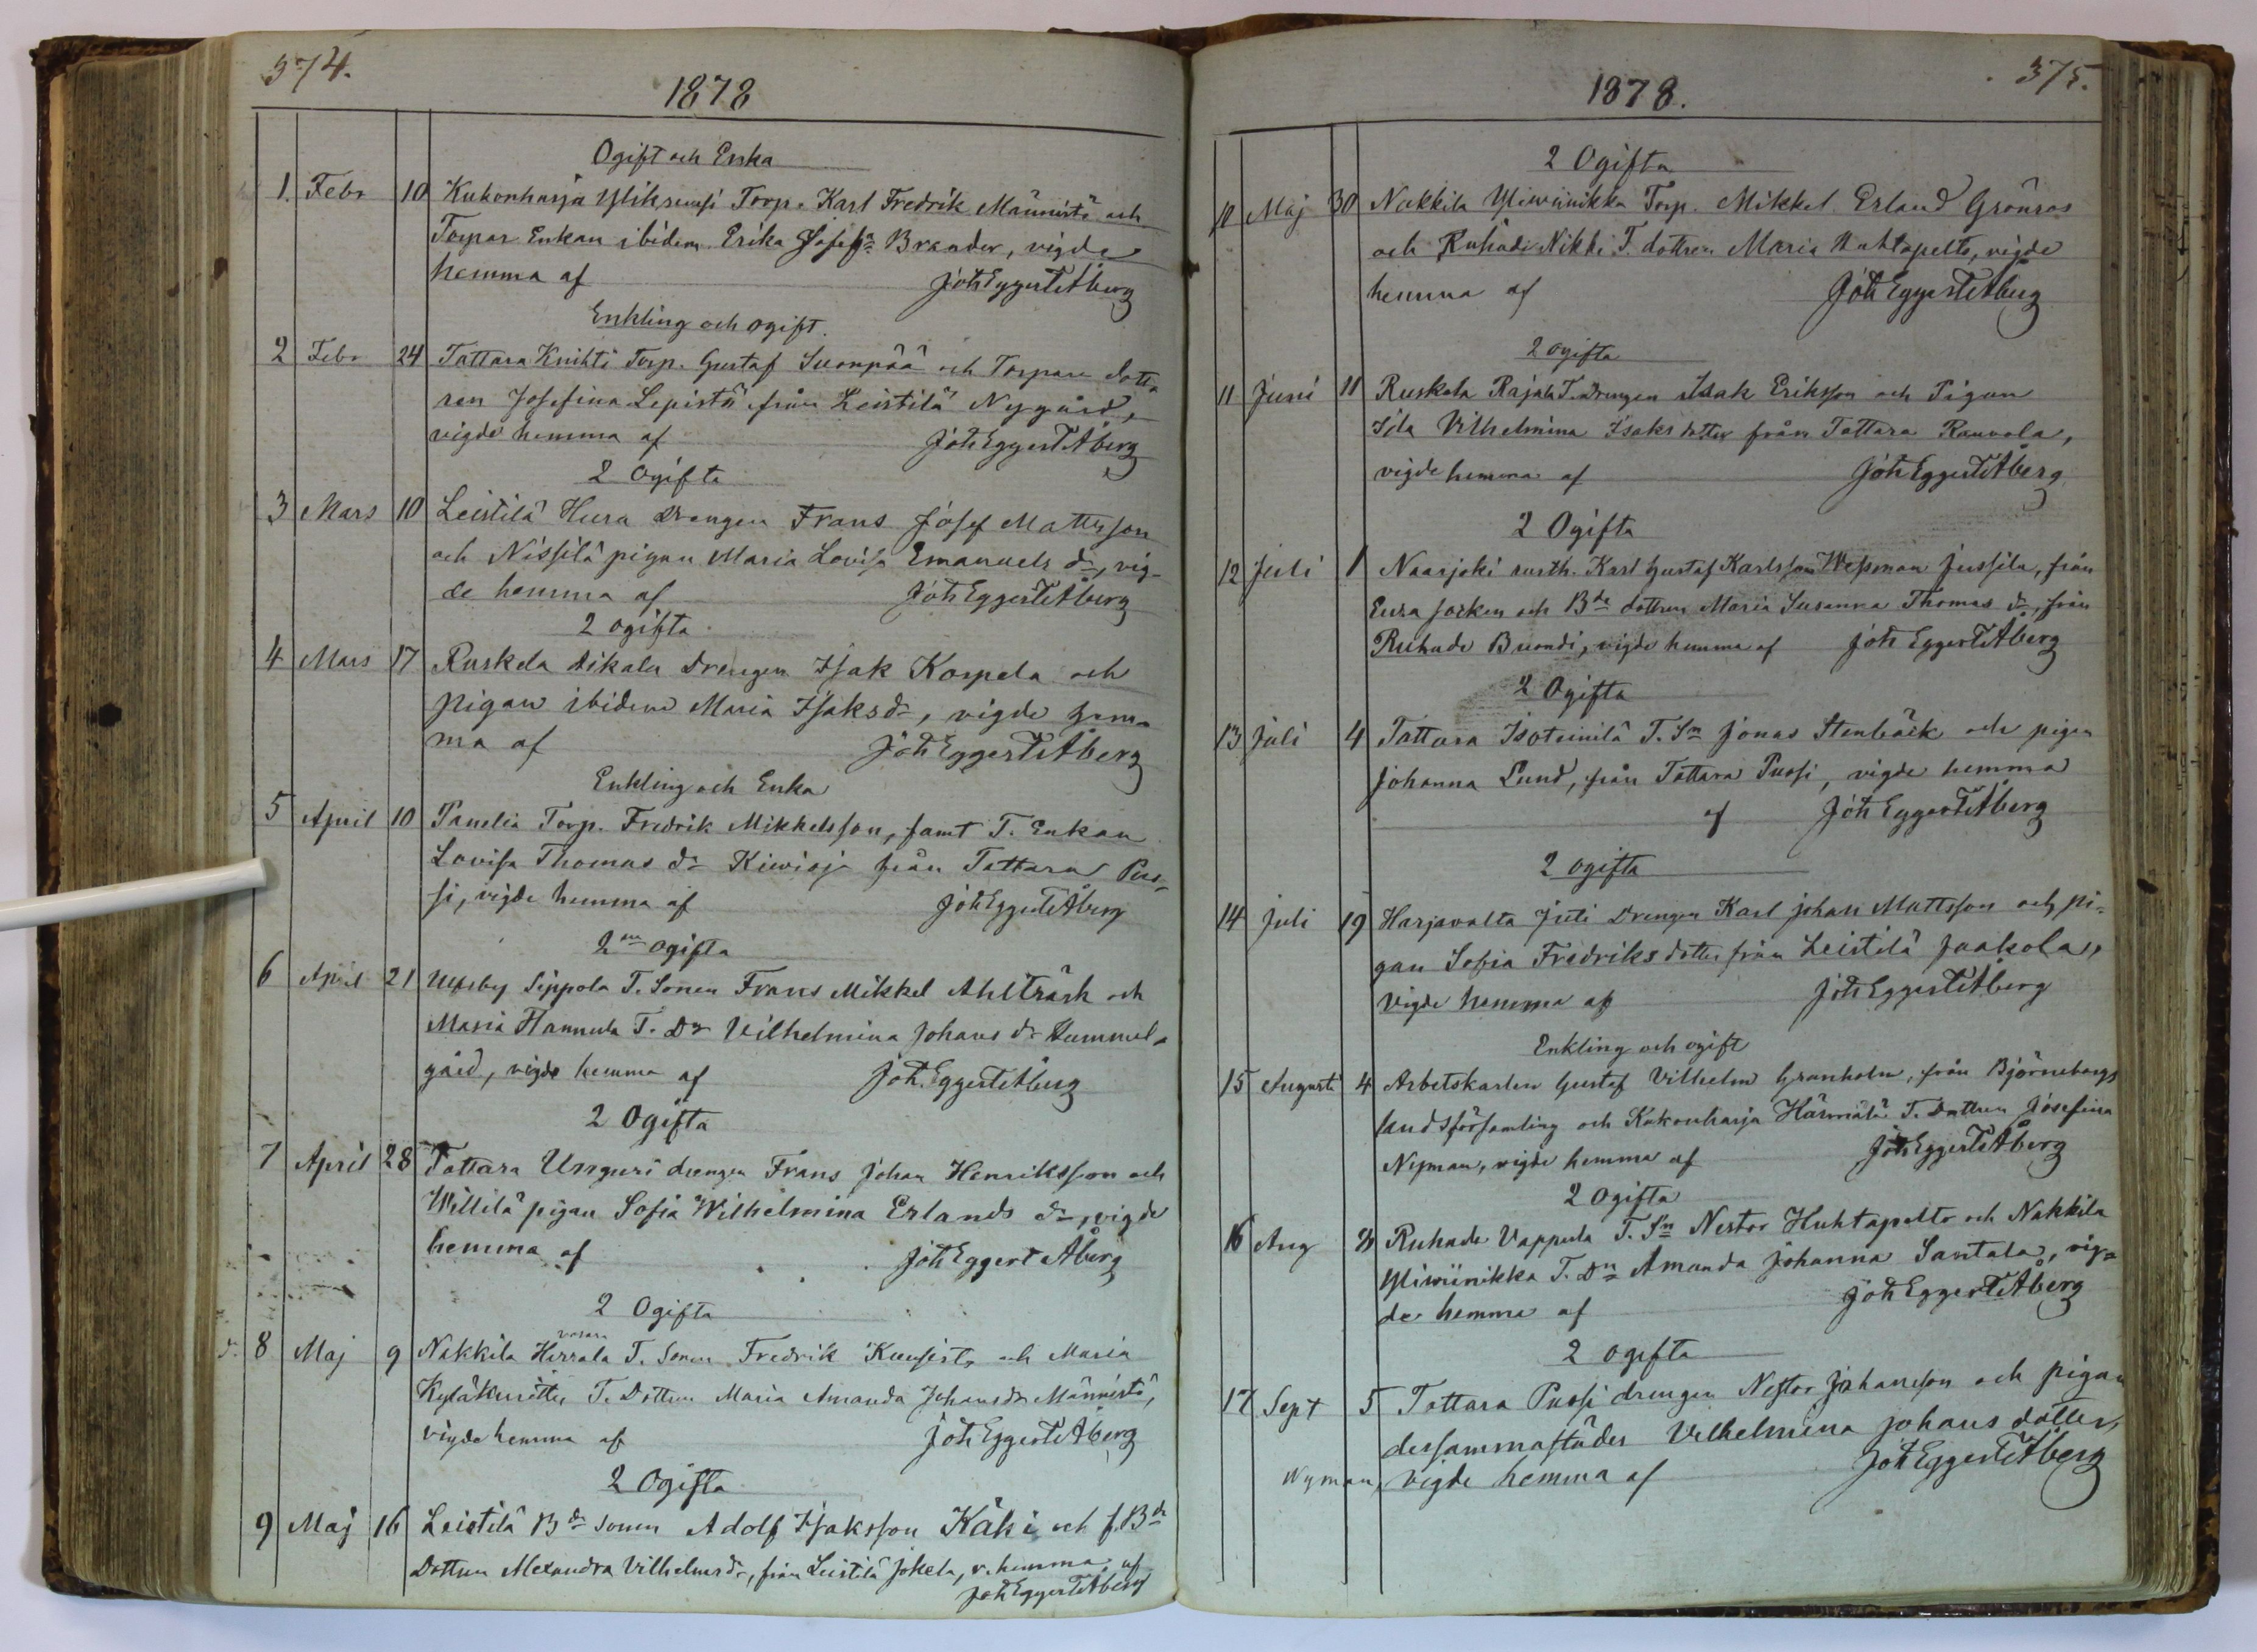 374.
1878
Ogift och Enka
1. Febr 10 Kukonharja Yliksuusi Torp. Karl Fredrik Männistö och
Torpar Enkan ibidem Erika Josefs dr Brander, vigde
hemma af Joh Eggert Åberg
Enkling och ogift.
2 Febr 24 Tattara Knihti Torp. Gustaf Suonpää och Torpare dott-
ren Josefina Lepistö från Leistilä Nygård,
vigde hemma af Joh Eggert Åberg
2 Ogifta
3 Mars 10 Leistilä Hura drengen Frans Josef Mattsson
och Nissilä pigan Maria Lovisa Emanuels dr, vig-
de hemma af Joh Eggert Åberg
2 ogifta
4 Mars 17 Ruskela Dikala Drengen Isak Korpela och
pigan ibidem Maria Isaksdr, vigde hem-
ma af Joh Eggert Åberg
Enkling och Enka
5 April 10 Panelia Torp. Fredrik Mikkelsson, samt T. Enkan
Lovisa Thomas dr Kiwioja från Tattara Pus-
si, vigde hemma af Joh Eggert Åberg
2ne ogifta
6 April 21 Ulfsby Sippola T. Sonen Frans Mikkel Ahlträsk och
Maria Hannula T. Dr Vilhelmina Johans dr Hummel-
gård, vigde hemma af Joh. Eggert Åberg
2 Ogifta
7 April 28 Tattara Unguri drengen Frans Johan Henriksson och
Willilä pigan Sofia Wilhelmina Erlands dr, vigde
hemma af Joh Eggert Åberg
2 Ogifta
8 Maj 9 Nakkila Herrala T. Sonen Fredrik Kuusisto och Maria
T. Dottren Maria Amanda Johansdr Männistö,
vigde hemma af Joh Eggert Åberg
2 Ogifta
9 Maj 16 Leistilä Bde sonen Adolf Isaksson Käki och f. Bde
Dottren Alexandra Vilhelmsdr, från Leistilä Jokela, v. hemma af
Joh Eggert Åberg
375.
1878.
2 Ogifta
10 Maj 30 Nakkila Yliwiinikka Torp. Mikkel Erland Grönroos
och Ruhade Nikki T. dottren Maria Huhtapelto, vigde
hemma af Joh Eggert Åberg
2 ogifta
11 Juni 11 Ruskela Rajala T. Drengen Isak Eriksson och Pigan
Ida Vilhelmina Isaks dotter från Tattara Rauvola,
vigde hemma af Joh Eggert Åberg
2 Ogifta
12 Juli 1 Naarjoki rusth. Karl Gustaf Karlsson Wessman Jussila, från
Eura Socken och Bde dottren Maria Susanna Thomas dr, från
Ruhade Buondi, vigde hemma af Joh Eggert Åberg
2 Ogifta
13 Juli 4 Tattara Isoteinilä T. Sn Jonas Stenbäck och pigan
Johanna Lund, från Tattara Pussi, vigde hemma
af Joh Eggert Åberg
2 ogifta
14 Juli 19 Harjavalta Juti Drengen Karl Johan Mattsson och pi-
gan Sofia Fredriks dotter från Leistilä Jaakola,
vigde hemma af Joh Eggert Åberg
Enkling och ogift
15 Augusti 4 Arbetskarlen Gustaf Vilhelm Granholm, från Björneborgs
landsförsamling och Kukonharja Härmälä T. Dottren Josefina
Nyman, vigde hemma af Joh Eggert Åberg
2 Ogifta
16 Aug 8 Ruhade Vappula T. Sn Nestor Huhtapelto och Nakkila
Yliwiinikka T. Dn Amanda Johanna Santala, vig-
de hemma af Joh Eggert Åberg
2 ogifta
17 Sept 5 Tattara Pussi drengen Nestor Johansson och pigan
dessammastädes Vilhelmina Johans dotter
Nyman, vigde hemma af Joh Eggert Åberg